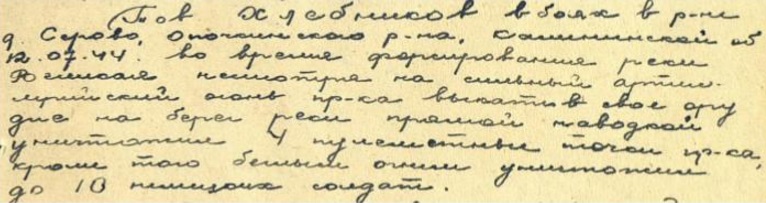 Тов Хлебников в боях в р-не
д. Серово, Опочинского р-на, Калининской об
12.07.44. во время форсирования реки
несмотря на сильный артил-
лерийский огонь пр-ка выкатив свое ору
дие на берег реки прямой наводкой
уничтожил 4 пулеметные точки пр-ка,
кроме того беглым огнем уничтожил
до 10 немецких солдат.